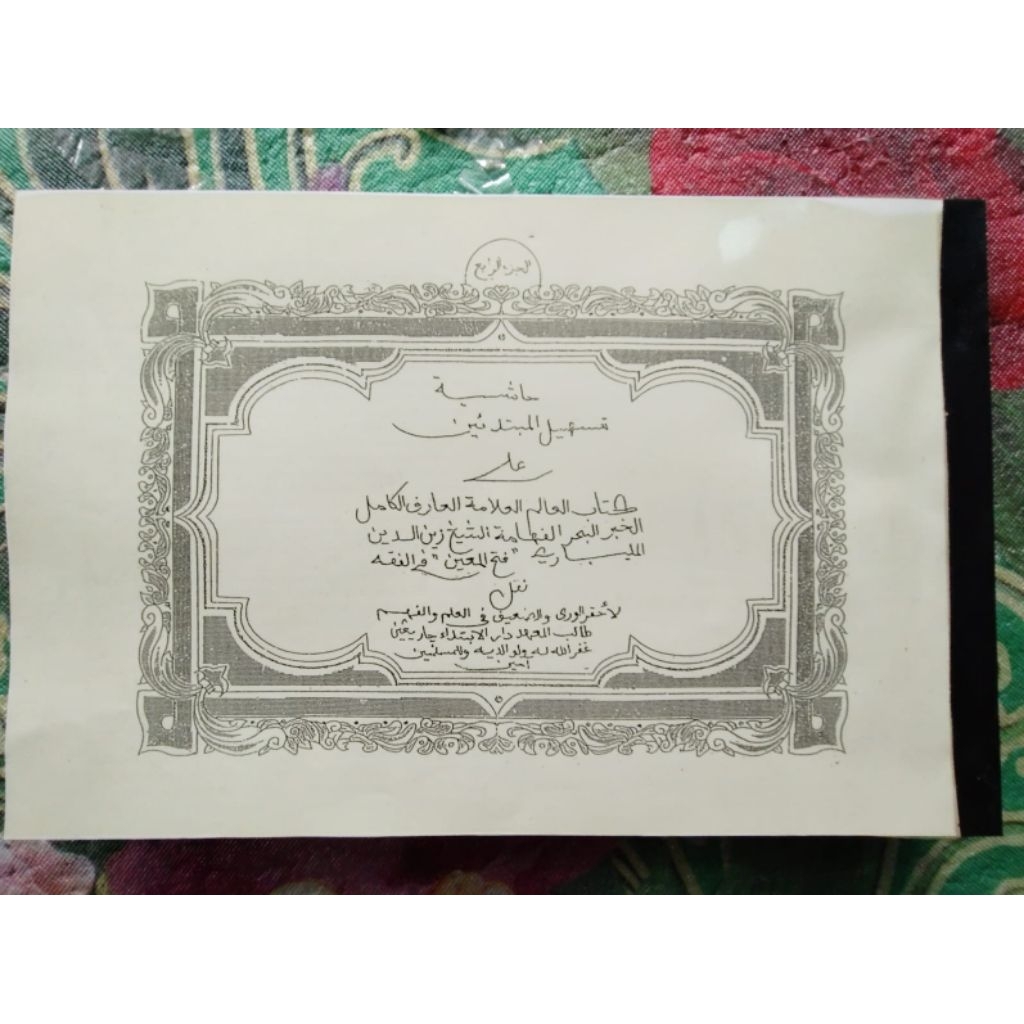 الجزء الرابع
حاشية
تسهيل المبتدئين
على
كتاب العالم العلامة العارف الكامل
الخبر البحر الفهامة الشيخ زين الدين
المليباري "فتح المعين" في الفقه
نقل
لأحقر الورى والضعيف في العلم والفهم
طالب المعهد دار الابتداء
غفر الله له ولوالديه وللمسلمين
آمين